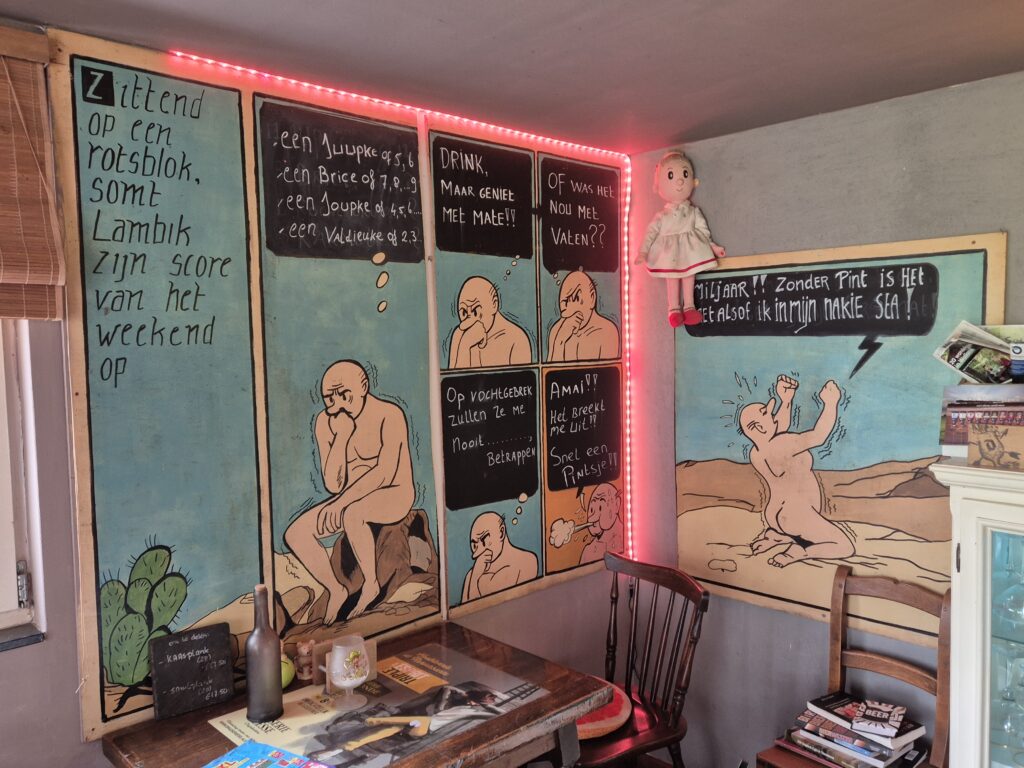 Zittend
op een
rotsblok,
somt
Lambik
zijn score
van het
weekend
op
- een Juupke of 5,6
- een Brice of 7,8...9
- een Joupke of 4,5,6...
- een Valdieuke of 2,3..
DRINK,
MAAR GENIET
MET MATE!!
OF WAS HET
NOU MET
VATEN??
OP VOCHTGEBREK
ZULLEN ZE ME
NOOIT..........,
BETRAPPEN
AMAI!!
HET BREEKT
ME UIT!!
SNEL EEN
PINTSJE!!
MILJAAR!! ZONDER PINT IS HET
ALSOF IK IN MIJN NAKIE STA!
om te delen:
- KAASPLANK
BEER